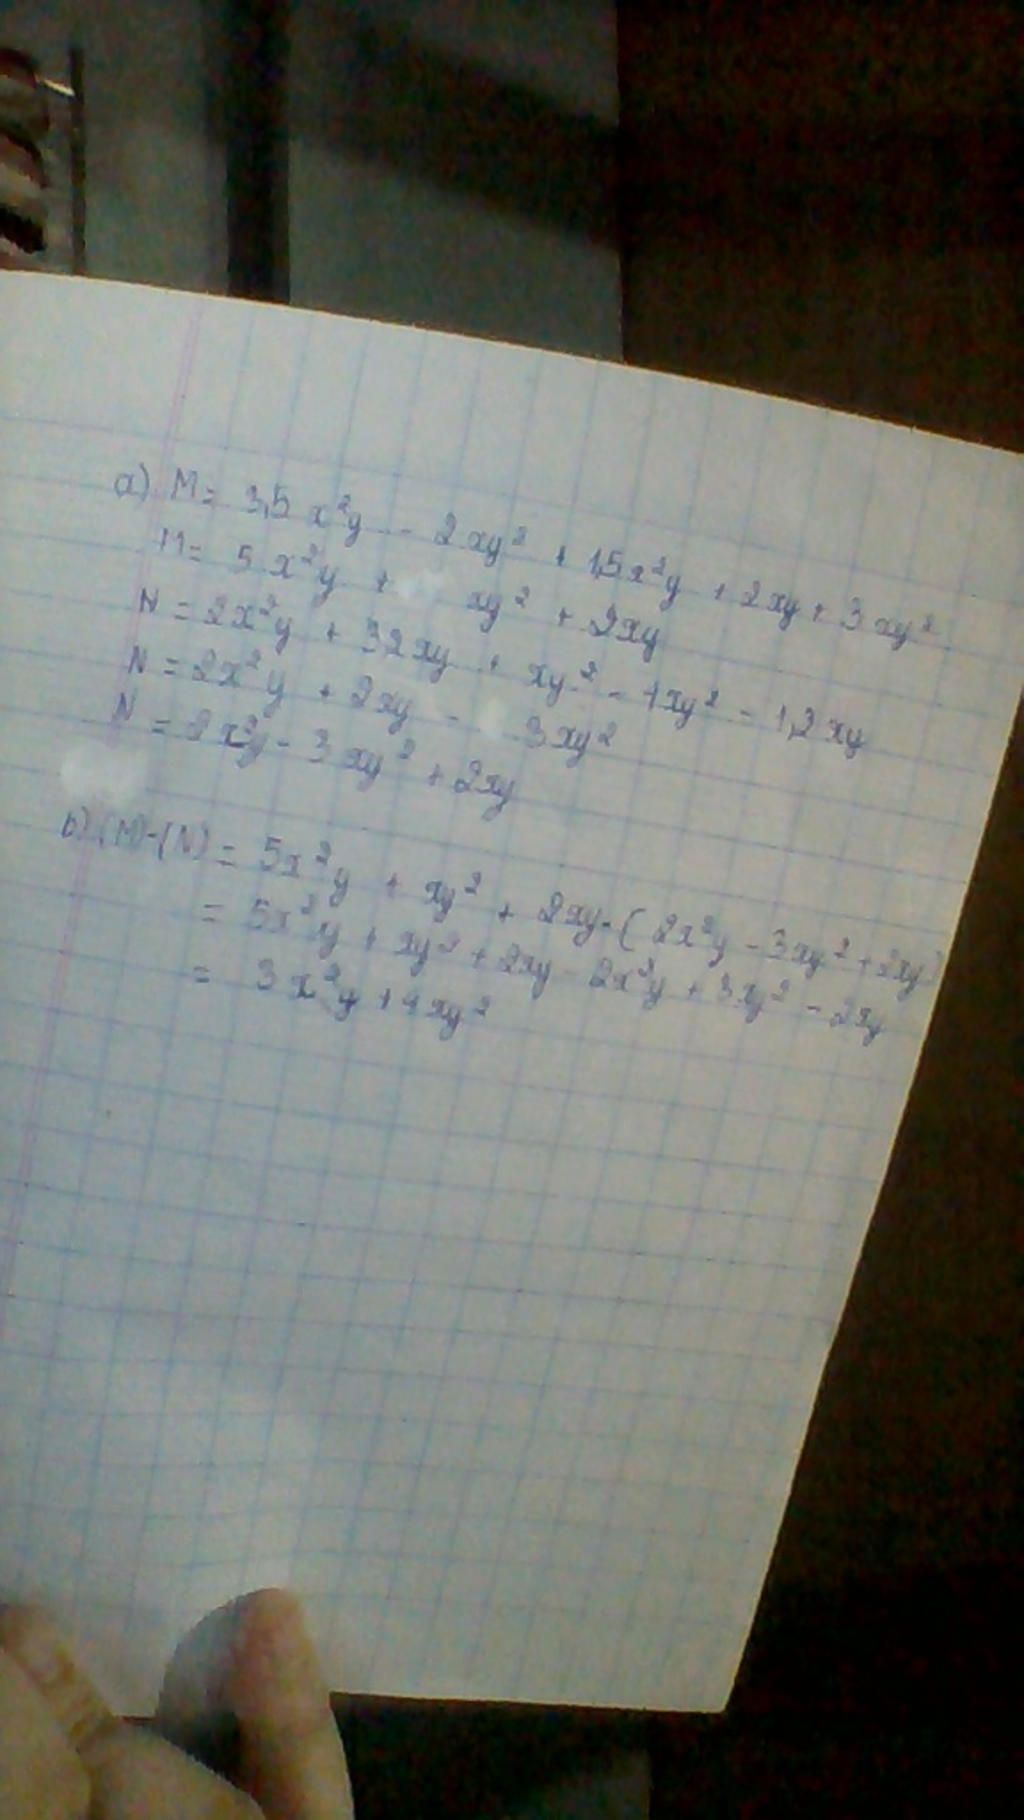 a) M = 3,5 x²y - 2xy² + 1,5x²y + 2xy + 3xy²
M = 5x²y + xy² + 2xy
N = 2x²y + 3,2xy + xy² - 4xy² - 1,2xy
N = 2x²y + 2xy - 3xy²
N = 2x²y - 3xy² + 2xy
b) (M)-(N) = 5x²y + xy² + 2xy - (2x²y - 3xy² + 2xy)
= 5x²y + xy² + 2xy - 2x²y + 3xy² - 2xy
= 3x²y + 4xy²